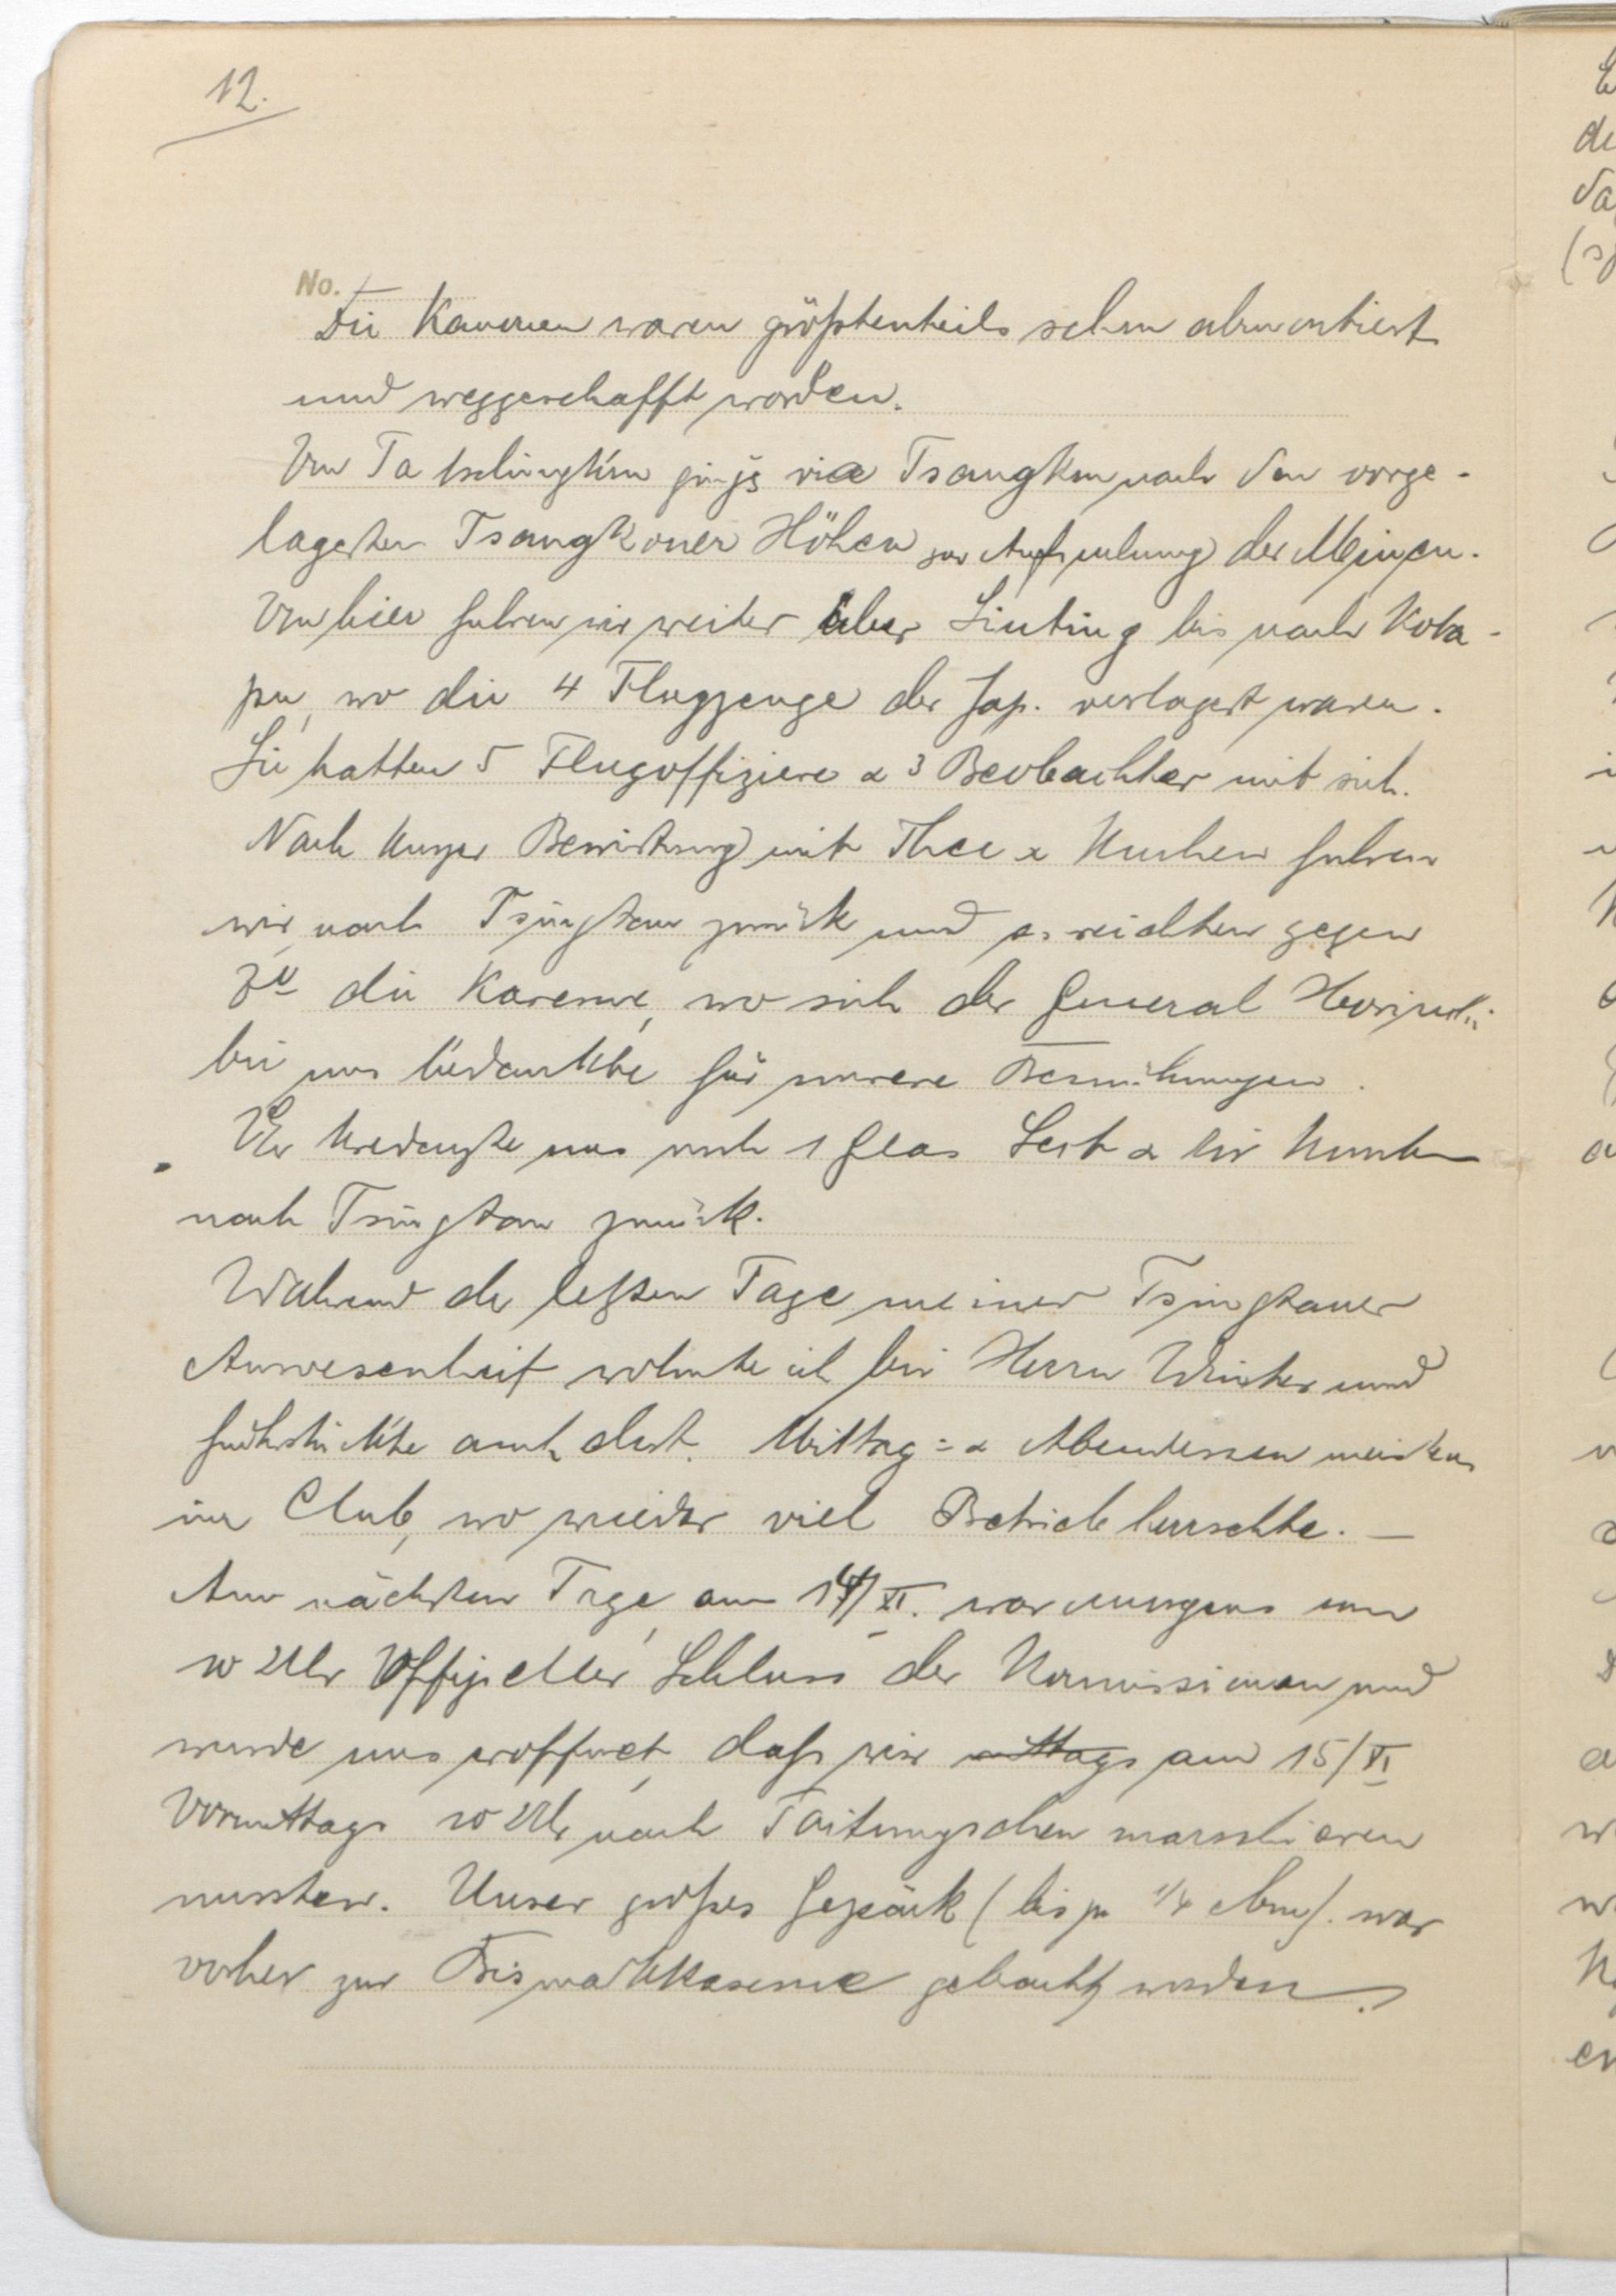 12.
No.
Die Kanonen waren größtenteils schon abmontiert
und weggeschafft worden.
Von Ta tschingtun ging's via Tsangkou nach den vorge-
lagerten Tsangkouer Höhen zur Aufsuchung der Minen.
Von hier fuhren wir weiter über Liuting bis nach Koba-
pu, wo die 4 Flugzeuge der Jap. verlagert waren.
Sie hatten 5 Flugoffiziere & 3 Beobachter mit sich.
Nach kurzer Bewirtung mit Thee & Kuchen fuhren
wir nach Tsingtau zurück und erreichten gegen
die Kaserne, wo sich der General
bei uns bedankte für unsere Bemühungen.
Er kredenzte uns noch 1 Glas Sect &
nach Tsingtau zurück.
Während der letzten Tage meiner Tsingtauer
Anwesenheit wohnte ich bei Herrn Winter und
frühstückte auch dort. Mittag= & Abendessen meistens
im Club, wo wieder viel Betrieb herrschte. —
Am nächsten Tage, am 14/XI. war morgens um
10 Uhr Offizieller Schluss der Kommissionen und
wurde uns eröffnet, daß wir mittags am 15/XI
Vormittags 10 Uhr nach Taitungschen marschieren
mussten. Unser großes Gepäck (bis zu 1/4 cbm). war
vorher zur Bismarkkaserne gebracht worden.